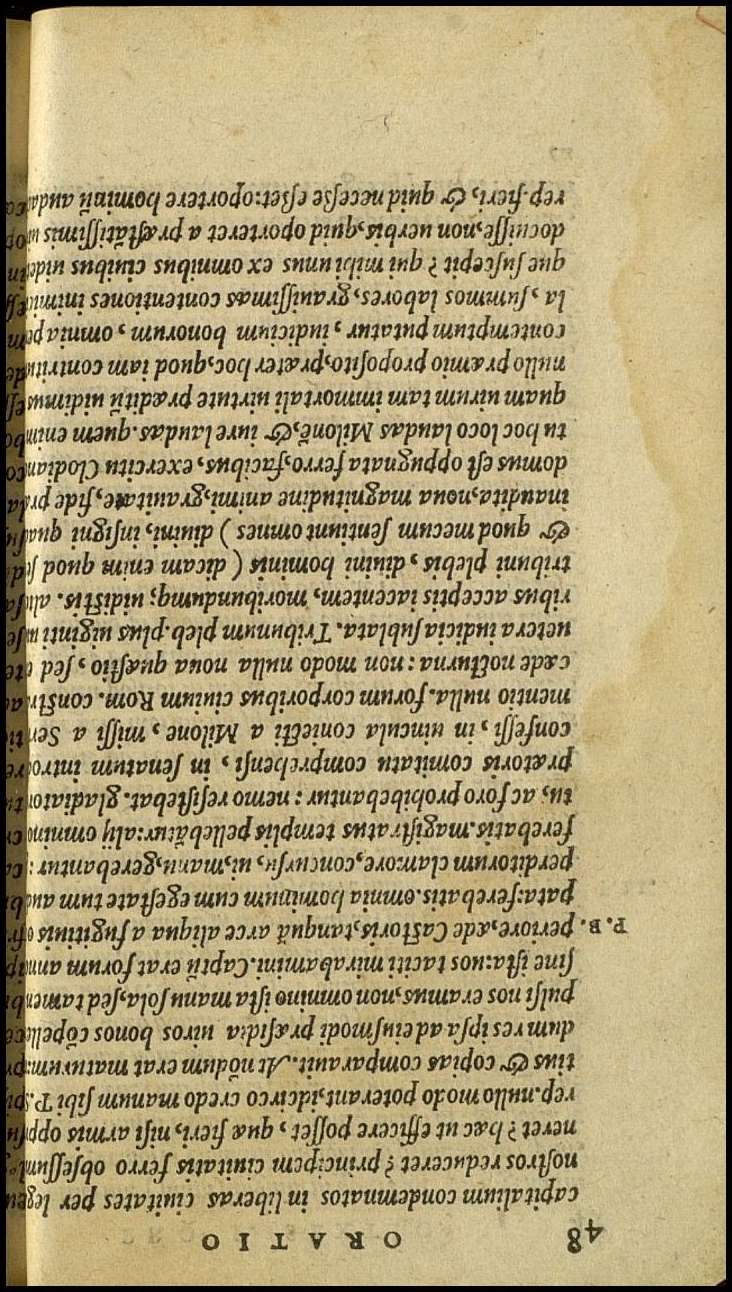 48 ORATIO
capitalium condemnatos in liberas ciuitates per
nostros reduceret? principem ciuitatis ferro obsessum
neret? hæc ut efficere posset, quæ fieri, nisi armis
rep. nullo modo poterant, idcirco credo manum sibi P.
tius & copias comparauit. At nōdum erat maturum:
dum res ipsa ad eiusmodi præsidia uiros bonos cōpellere
pulsi nos eramus, non omnino ista manu sola, sed tamen
sine ista: uos taciti mirabamini. Captū erat forum
P. B. periore, æde Castoris, tanquā arce aliqua a fugitiuis
pata: ferebatis. omnia hominum cum egestate tum
perditorum clamore, concursu, ui, manu, gerebantur:
ferebatis. magistratus templis pellebātur: alij omnino
tu, ac foro prohibebantur: nemo resistebat. gladiatores
prætoris comitatu comprehensi, in senatum
confessi, in uincula coniecti a Milone, missi a
mentio nulla. forum corporibus ciuium Rom.
cæde nocturna: non modo nulla noua quæstio, sed
uetera iudicia sublata. Tribunum pleb. plus uiginti
ribus acceptis iacentem, moribundumq; uidistis.
tribuni plebis, diuini hominis (dicam enim quod
& quod mecum sentiunt omnes) diuini, insigni
inaudita, noua magnitudine animi, grauitate, fide
domus est oppugnata ferro, facibus, exercitu Clodiano
tu hoc loco laudas Milonē, & iure laudas. quem enim
quam uirum tam immortali uirtute præditū uidimus
nullo præmio proposito, præter hoc, quod iam
contemptum putatur, iudicium bonorum, omnia
la, summos labores, grauissimas contentiones
que suscepit? qui mihi unus ex omnibus ciuibus
docuisse, non uerbis, quid oporteret a præstātissimis
rep. fieri, & quid necesse esset: oportere hominū